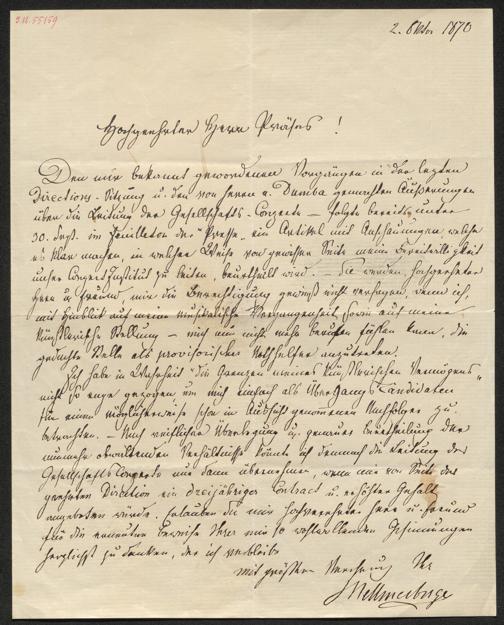 2. Oktbr 1870
Hochgeehrter Herr Präses !
Den mir bekannt gewordenen Vorgängen in der letzten
Directions-Sitzung u. den von Herrn v. Dumba gemachten Äußerungen
über die Leitung der Gesellschafts-Concerte – folgte bereits unter
30. Sept. im Feuilleton der "Presse" ein Artikel mit Anschauungen welche
es klar machen, in welcher Weise von gewisser Seite meine Bereitwilligkeit
unser Concert-Institut zu leiten, beurtheilt wird. – Sie werden, hochgeehrter
Herr u. Freund, mir die Berechtigung gewiß nicht versagen, wenn ich,
mit Hinblick auf meine musikalische Vergangenheit, sowie auf meine
künstlerische Stellung – mich nun nicht mehr berufen fühlen kann, die
gedachte Stelle als provisorischer Nothhelfer anzutreten.
Ich habe in Wahrheit "die Grenzen meines künstlerischen Vermögens"
nicht so enge gezogen um mich einfach als Übergangs-Candidaten
für einen möglicherweise schon in Aussicht genommenen Nachfolger zu
betrachten. – Nach reiflicher Überlegung u. genauer Beurtheilung der
nunmehr obwaltenden Verhältnisse könnte ich demnach die Leitung der
Gesellschafts-Concerte nur dann übernehmen, wenn mir von Seite der
geehrten Direction ein dreijähriger Contract u. erhöhter Gehalt
angeboten würde. Erlauben Sie mir hochverehrter Herr u. Freund
für die erneuten Beweise Ihrer mir so wohlwollenden Gesinnungen
herzlichst zu danken, der ich verbleibe
mit größter Verehrung Ihr
JHellmesberger